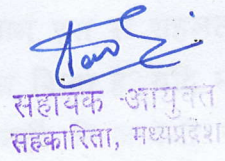 सहायक आयुक्त
सहकारिता, मध्यप्रदेश